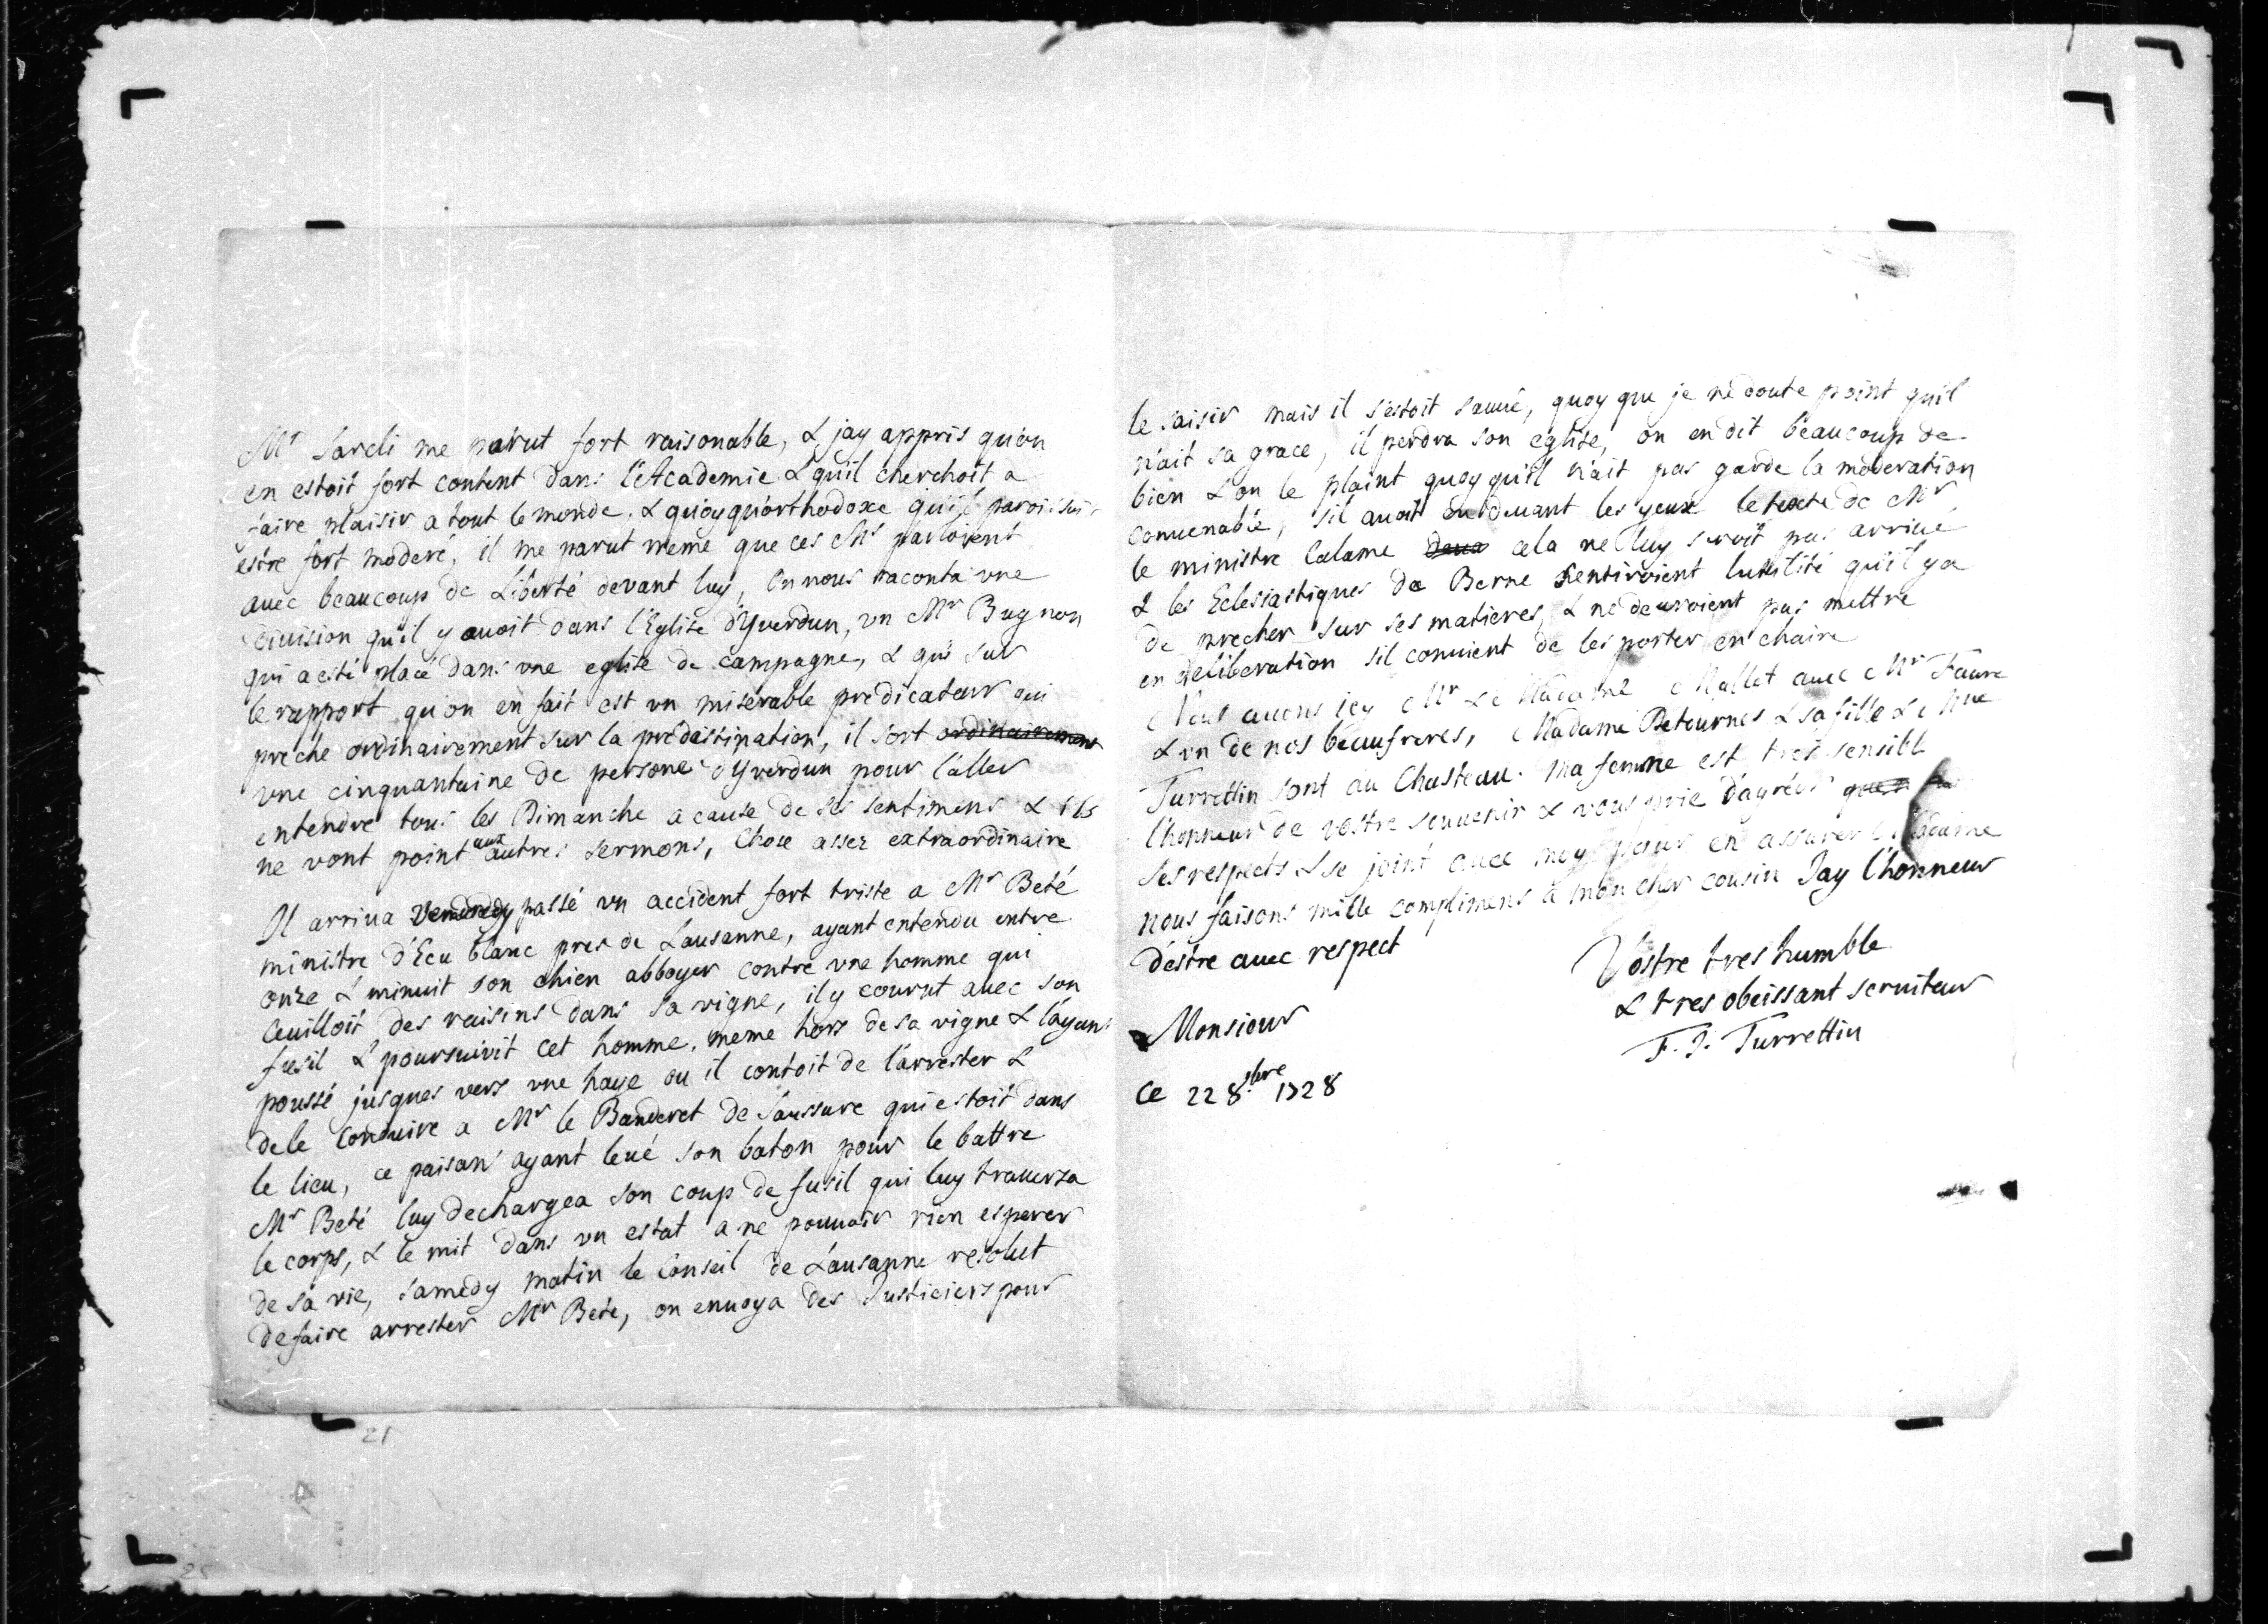 Mr Sarcli me parut fort raisonable, & jay appris qu'on
en estoit fort content dans l'Academie & qu'il cherchoit a
faire plaisir a tout le monde, & quoyqu'orthodoxe qu'il paroissoit
estre fort moderé, il me parut meme que ces Mrs parloient
auec beaucoup de Liberté devant luy, On nous raconta vne
diuision qu'il y auoit dans l'Eglise d'Yverdun, vn Mr Bugnon
qui a esté placé dans vne eglise de campagne, & qui sur
le rapport qu'on en fait est vn miserable predicateur qui
preche ordinairement sur la predestination, il sort ordinairement
vne cinquantaine de persone d'Yverdun pour l'aller
entendre tous les Dimanche a cause de ses sentimens & ils
ne vont point aux autres sermons, Chose assez extraordinaire
Il arriua Vendredy passé vn accident fort triste a Mr Beté
ministre d'Ecu blanc pres de Lausanne, ayant entendu entre
onze & minuit son chien abboyer contre vne homme qui
Ceuilloit des raisins dans sa vigne, il y courut auec son
fusil & poursuivit cet homme, meme hors de sa vigne & l'ayant
poussé jusques vers vne haye ou il contoit de l'arrester &
de le Conduire a Mr le Banderet de Saussure qui estoit dans
le lieu, ce paisan ayant leué son baton pour le battre
Mr Beté luy dechargea son coup de fusil qui luy trauersa
le corps, & le mit dans vn estat a ne pouuoir rien esperer
de sa vie, Samedy matin le Conseil de Lausanne resolut
de faire arrester Mr Beté, on enuoya des Justiciers pour
le saisir mais il s'estoit sauué, quoy que je ne doute point qu'il
n'ait sa grace, il perdra son eglise, on en dit beaucoup de
bien & on le plaint quoy qu'il n'ait pas gardé la moderation
conuenable, s'il auoit eu deuant les yeux le texte de Mr
le ministre Calame cela ne luy seroit pas arriué
& les Eclesiastiques de Berne sentiroient lutilité qu'il y a
de precher sur ses matieres, & ne deuroient pas mettre
en deliberation s'il conuient de les porter en chaire
Nous auons icy Mr & Madame Mallet auec Mr Faure
& vn de nos beaufreres, Madame Detournes & sa fille & Mlle
Turrettin sont au Chasteau. Ma femme est tres sensible
l'honneur de vostre souuenir & vous prie d'agréer
ses respects & se joint auec moy pour en assurer Madame
nous faisons mille complimens à mon cher cousin Jay l'honneur
d'estre auec respect
Monsieur
Vostre tres humble
& tres obeissant seruiteur
F. J. Turrettin
Ce 22 8bre 1728
21
25